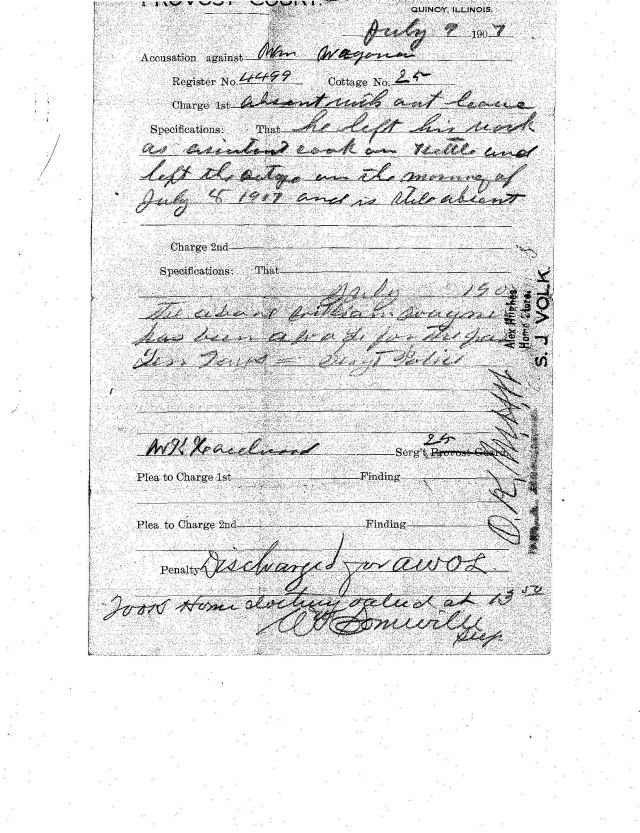 PROVOST COURT.
QUINCY, ILLINOIS.
July 9 1907
Accusation against Wm Wagoner
Register No. 4499 Cottage No. 25
Charge 1st absent with out leave
Specifications: That he left his work
as assistent cook on Kettle and
left the cotage on the morning of
July 8 1907 and is still absent
Charge 2nd
Specifications: That
July 190
The above William Wagner
has been a for the pas
Ten Days = Sergt Police
Serg't, 25 Provost Guard
Plea to Charge 1st Finding
Plea to Charge 2nd Finding
Penalty Discharged for AWOL
Took Home clothing valued at 13 50
Somerville
Sup
Alex Hughes
Home Store
S. J VOLK.
O.K.